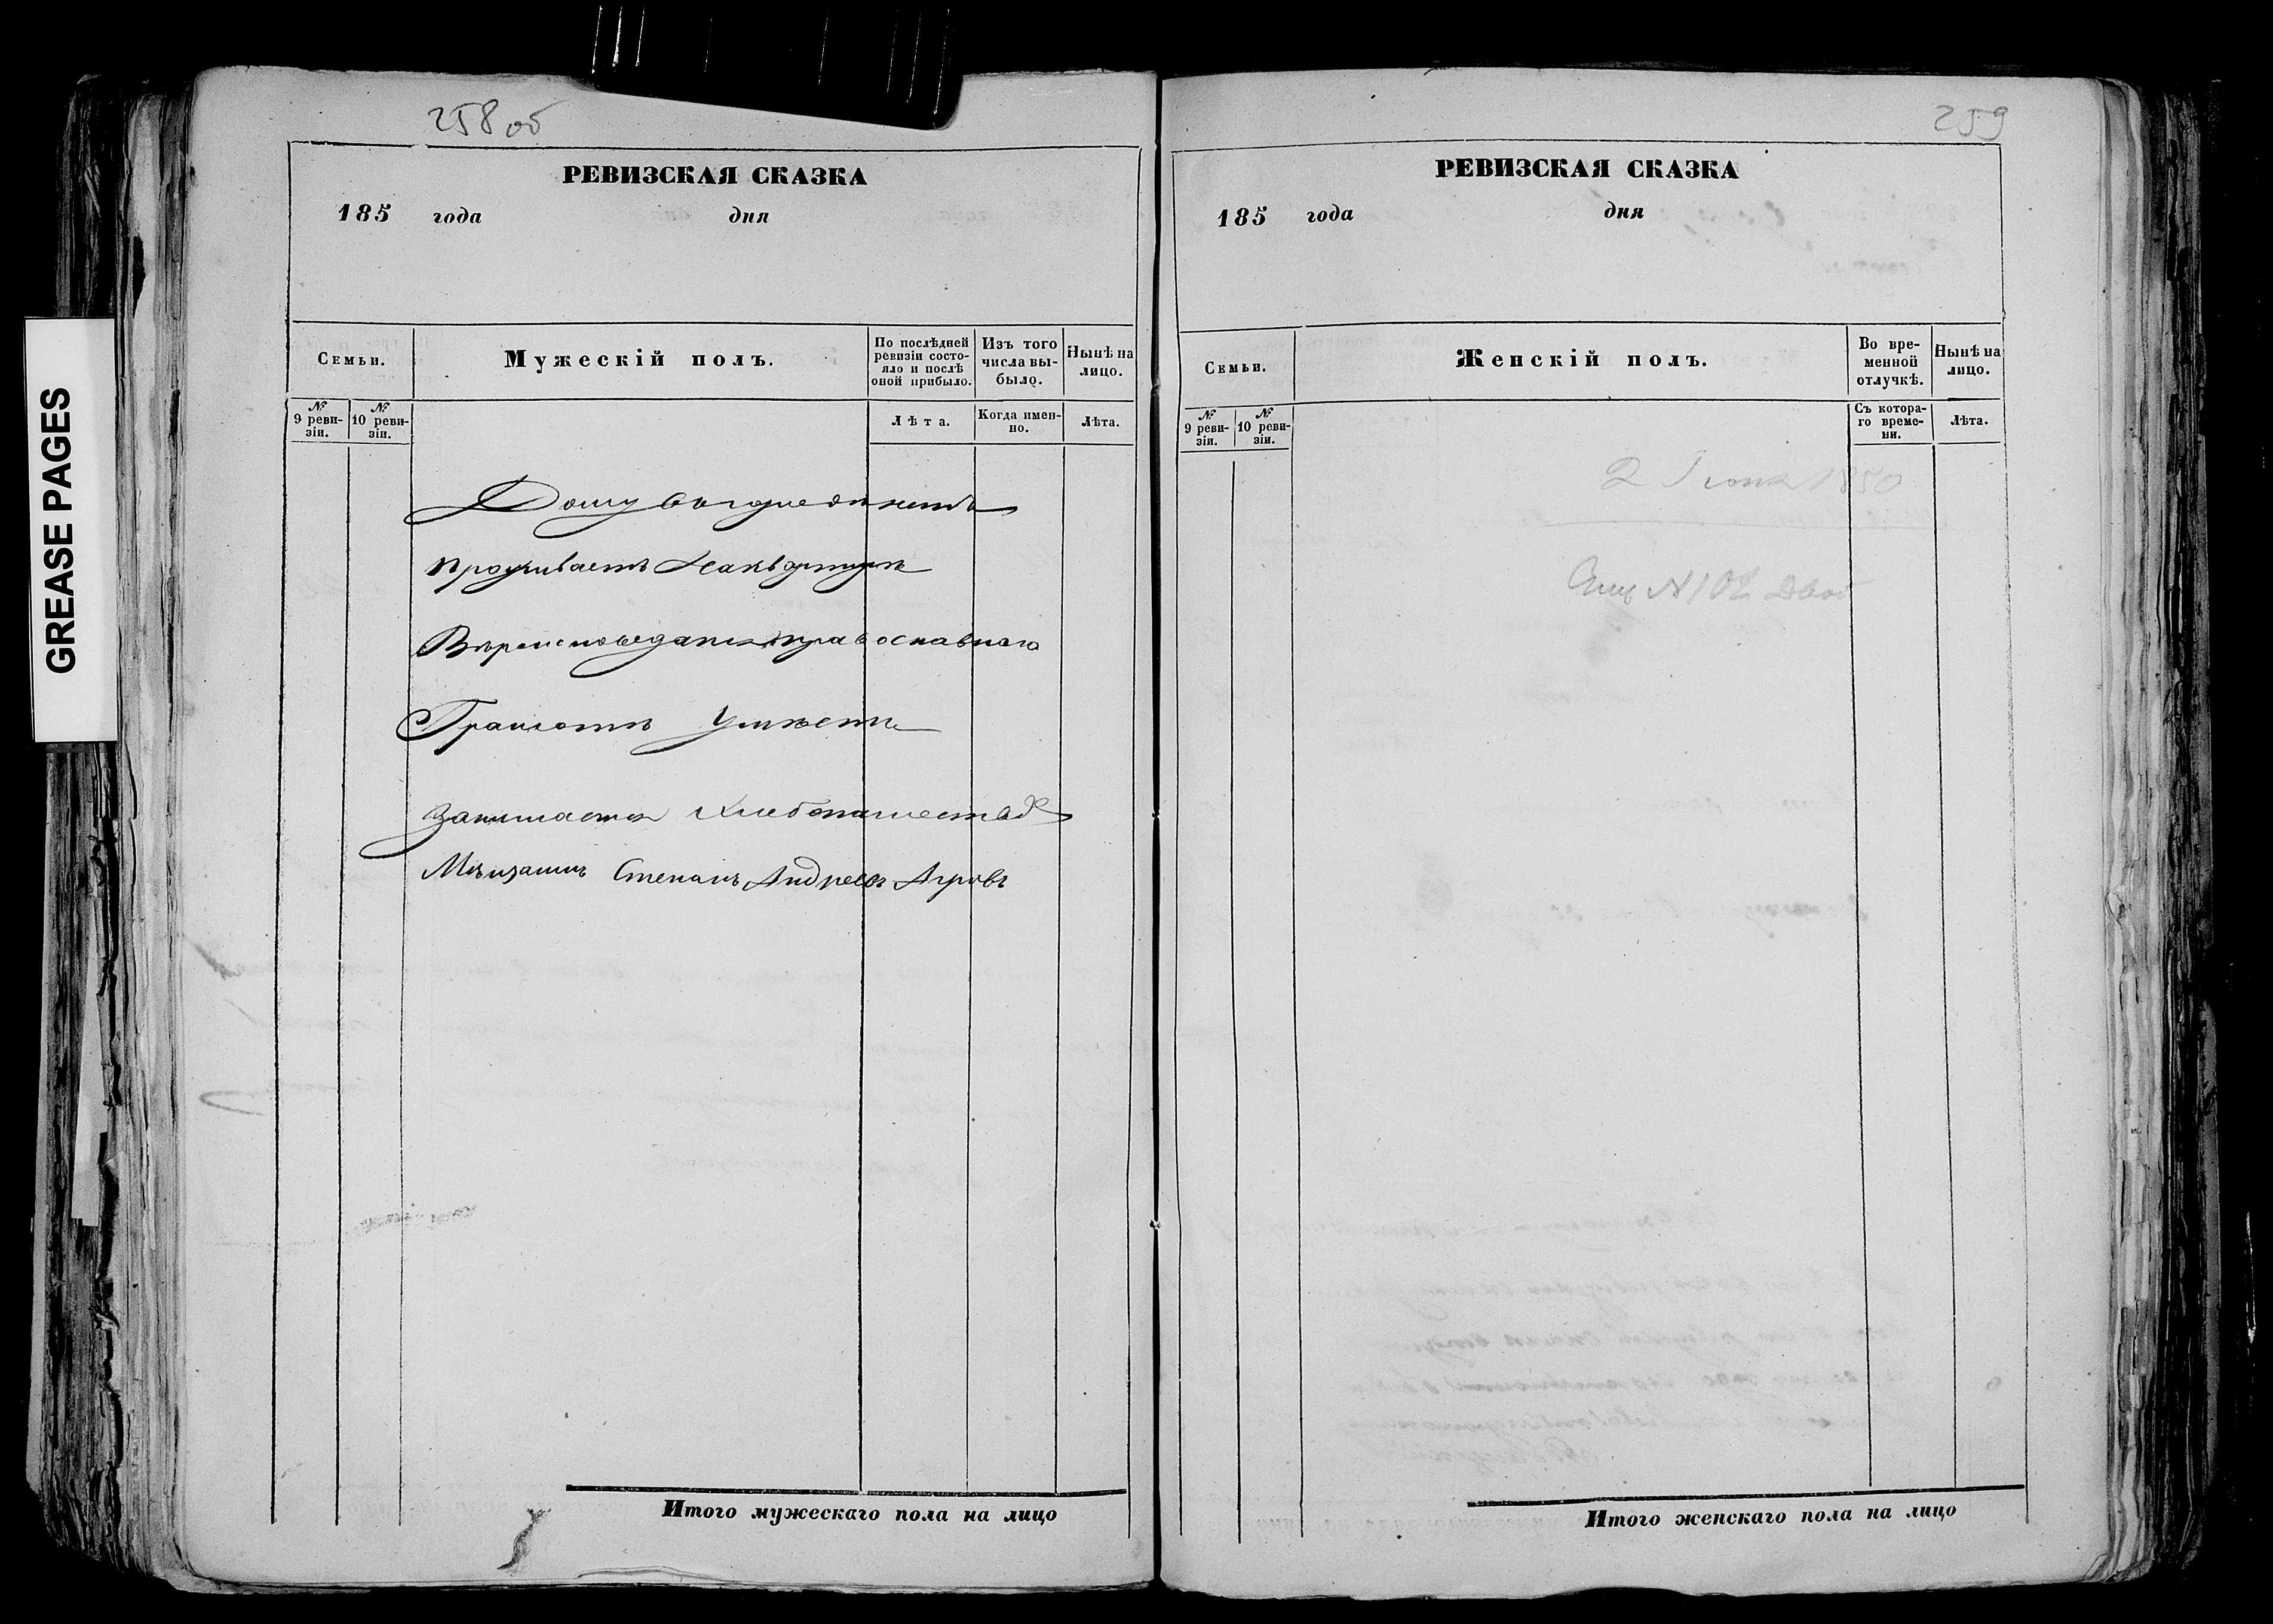 GREASE PAGES
258 об
РЕВИЗСКАЯ СКАЗКА
185 года дня
Семьи.
Мужескій полъ.
По послѣдней ревизіи состояло и послѣ оной прибыло.
Изъ того числа выбыло.
Нынѣ на лицо.
№ 9 ревизіи.
№ 10 ревизіи.
Лѣта.
Когда именно.
Лѣта.
Дому въ городе
проживаетъ на квартире
Вѣроисповедания православнаго
Грамотѣ умѣетъ
Занимается хлебопашествомъ
Мѣщанинъ Степанъ Андреевъ
Итого мужескаго пола на лицо
259
РЕВИЗСКАЯ СКАЗКА
185 года дня
Семьи.
Женскій полъ.
Во временной отлучкѣ.
Нынѣ на лицо.
№ 9 ревизіи.
№ 10 ревизіи.
Съ котораго времени.
Лѣта.
2 Iюня 1850
№ 102
Итого женскаго пола на лицо